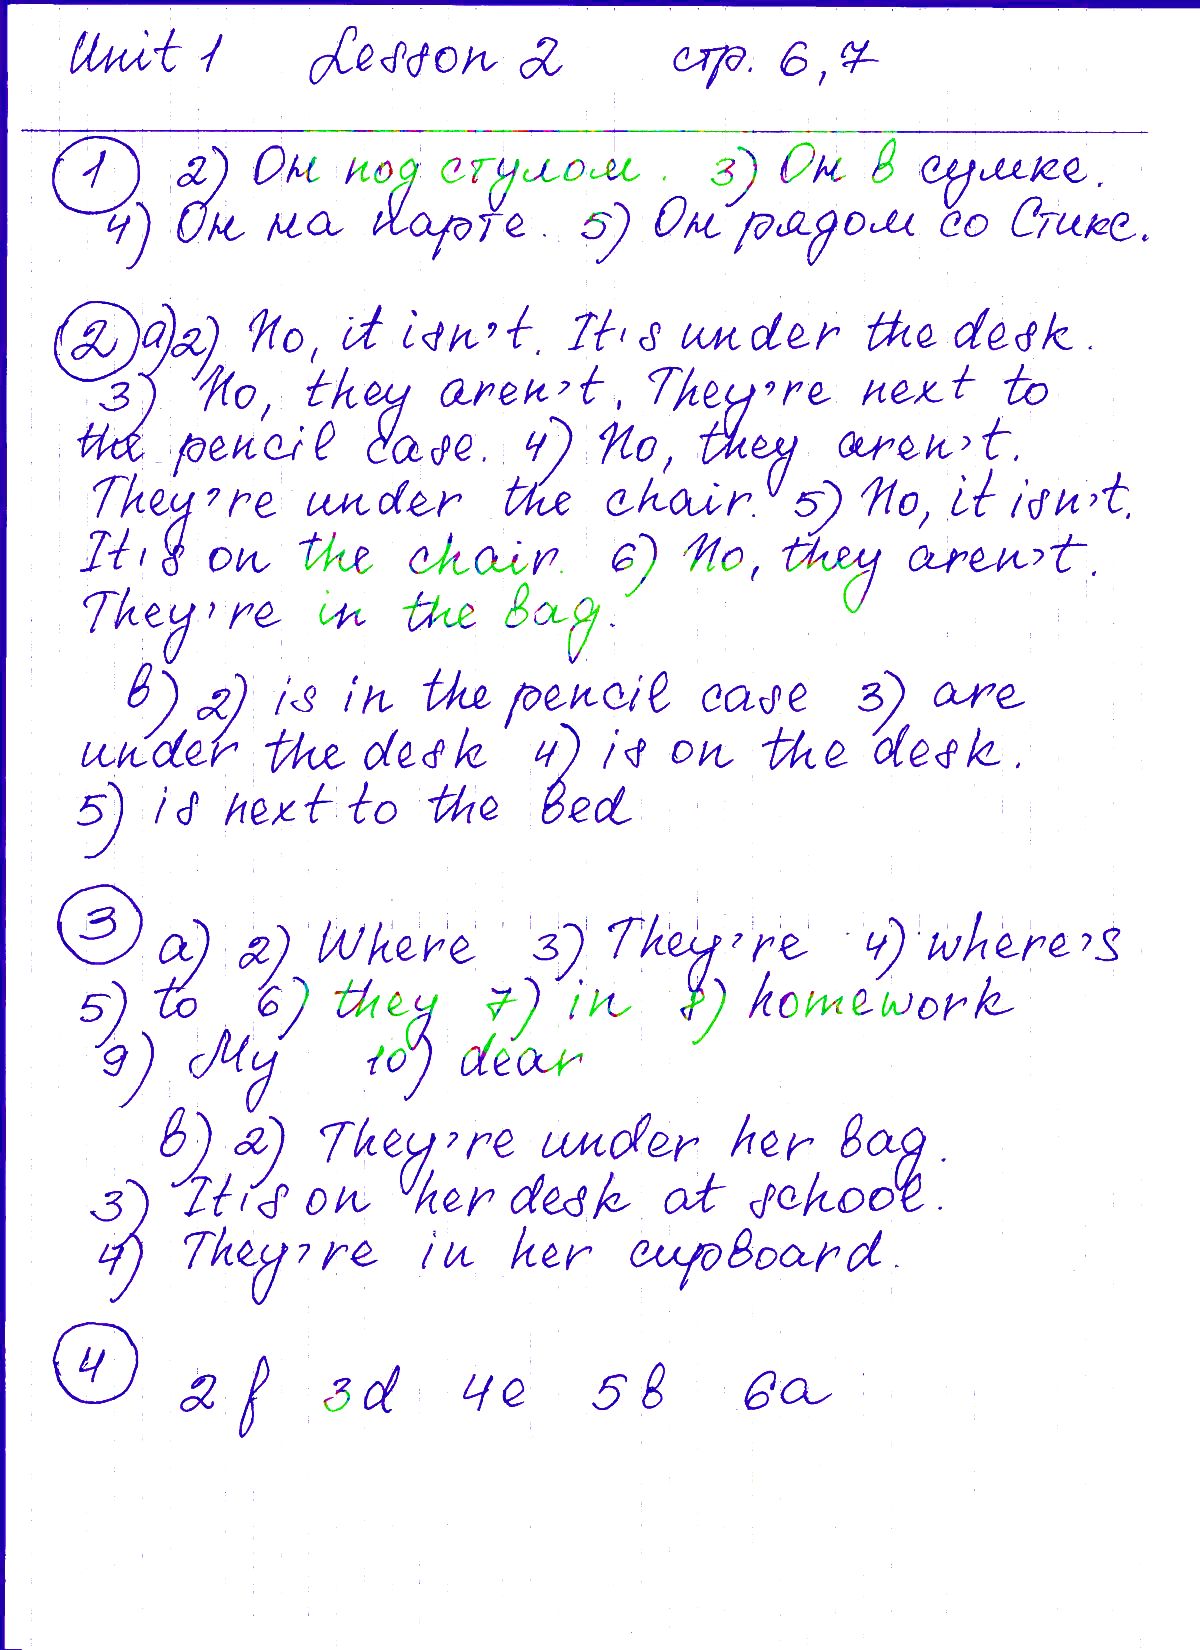 Unit 1 Lesson 2 стр. 6, 7
1 2) Он под стулом. 3) Он в сумке.
4) Он на парте. 5) Он рядом со Стикс.
2 a) 2) No, it isn't. It's under the desk.
3) No, they aren't. They're next to
the pencil case. 4) No, they aren't.
They're under the chair. 5) No, it isn't.
It's on the chair. 6) No, they aren't.
They're in the bag.
b) 2) is in the pencil case 3) are
under the desk 4) is on the desk.
5) is next to the bed
3 a) 2) Where 3) They're 4) where's
5) to 6) they 7) in 8) homework
9) My 10) dear
b) 2) They're under her bag.
3) It's on her desk at school.
4) They're in her cupboard.
4 2 f 3d 4e 5b 6a